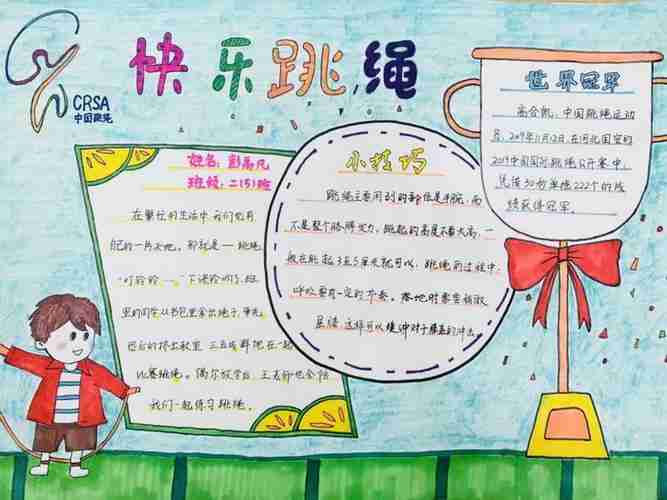 CRSA
中国跳绳
快乐跳绳
姓名:彭禹凡
班级:二(5)班
在繁忙的生活中,我们也有
自己的一片天地。那就是——跳绳
"叮铃铃……"下课铃响了,班
里的同学从书包里拿出绳子,争先
恐后的挤出教室,三五成群地在一起
比赛跳绳。偶尔放学后,王老师也会陪
我们一起练习跳绳。
小技巧
跳绳主要用到的部位是手腕,而
不是整个胳膊发力,跳起的高度不要太高,一
般在跳起3至5厘米就可以,跳绳的过程中,
呼吸要有一定的节奏。落地时要实稍微
屈膝,这样可以缓冲对于膝盖的冲击。
世界冠军
高合凯,中国跳绳运动
员,2019年11月12日,在河北固安的
2019中国国际跳绳公开赛中,
凭借30秒单摇222个的成
绩获得冠军。